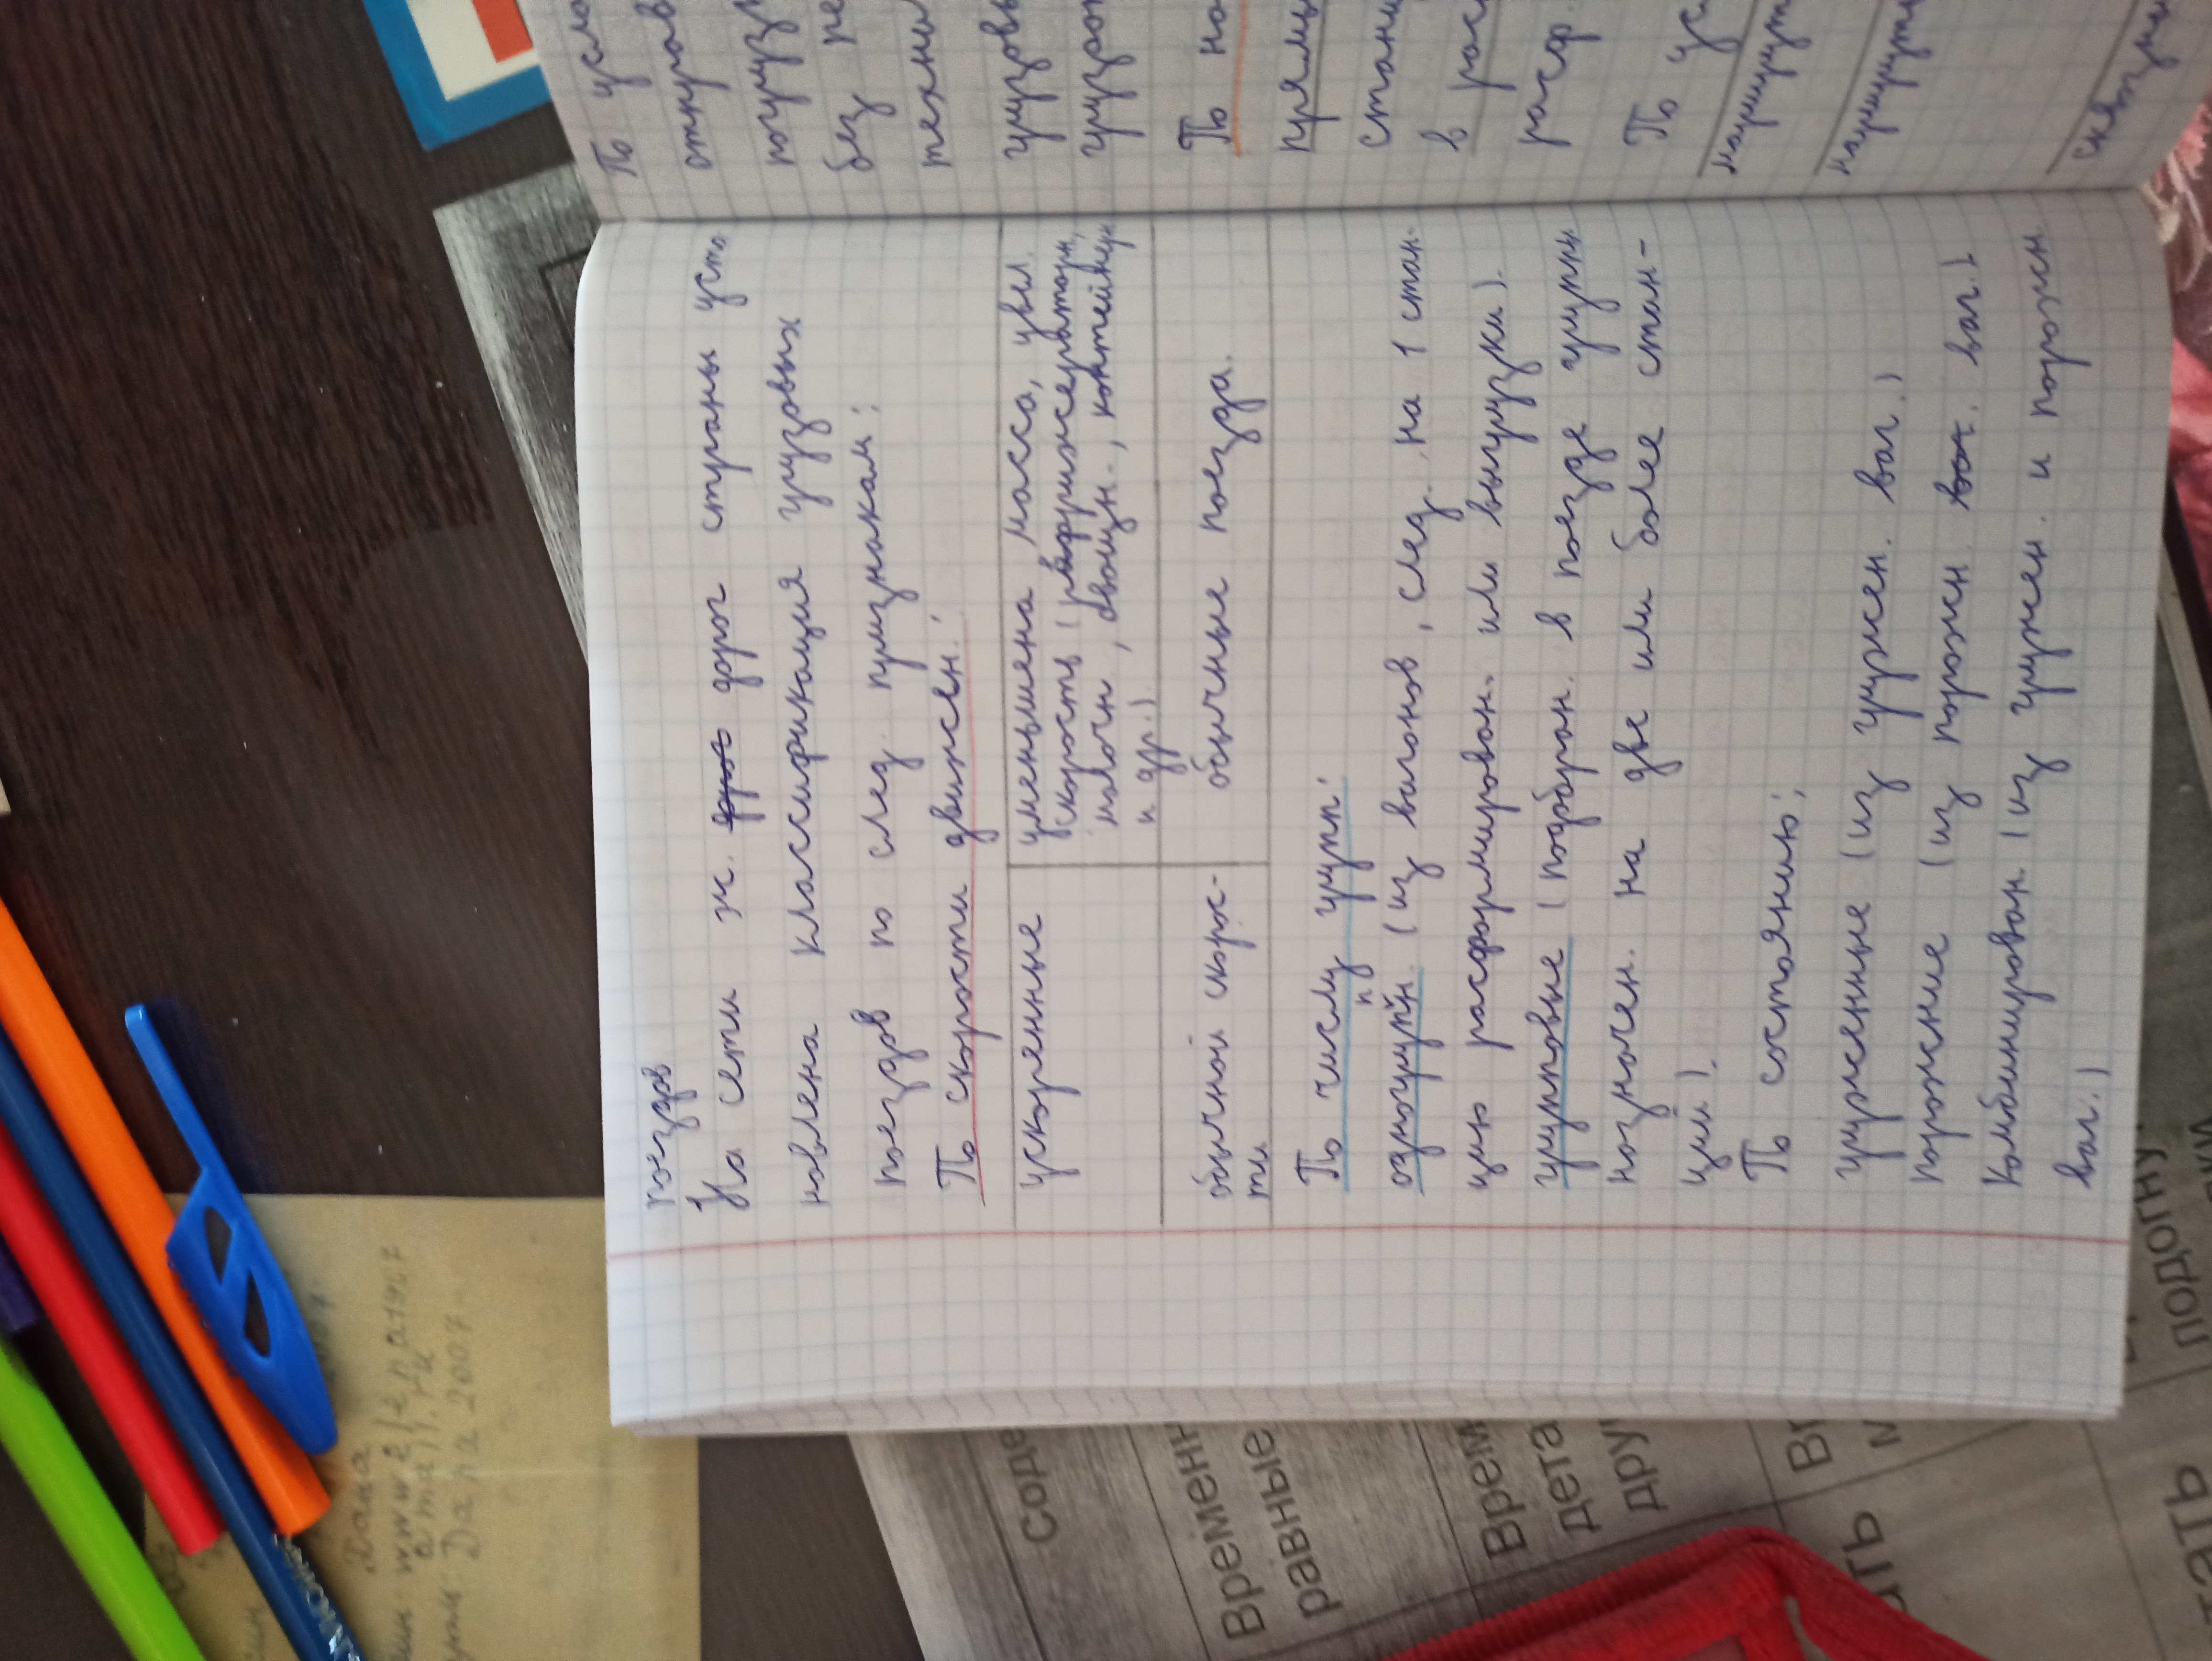 поездов
На сети ж. дорог страны уста
новлена классификация грузовых
поездов по след. признакам:
По скорости движен.:
ускоренные
уменьшена масса, увел.
скорость (рефрижераторн,
молочн, овощн., контейнерн
и др.)
обычной скорос-
ти
обычные поезда.
По числу групп:
одногрупн. (из вагонов, след. на 1 стан-
п
цию расформирован. или выгрузки).
групповые (подобран. в поезде группы
назначен. на две или более стан-
ции).
По состоянию:
груженные (из гружен. ваг.)
порожние (из порожн. ваг.)
Комбинирован. (из гружен. и порожн
ваг.)
По усло
отправ
погрузк
без пе
технич
грузовы
По на
прямы
стани
в рас
расф
По ус
маршрут
соде
Временн
равные
Врем
дета
дру
подогну
Дапа
Дапа 2007